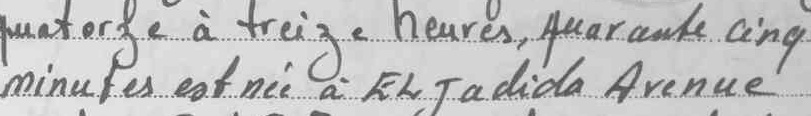 quatorze à treize heures, quarante cinq
minutes est née à EL Jadida Avenue